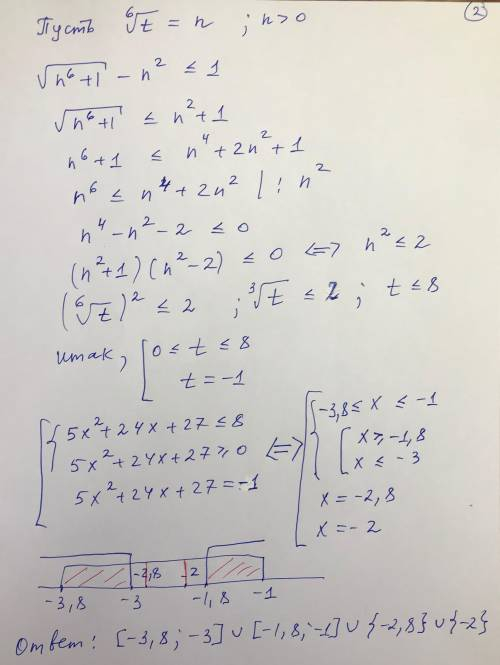 2
Пусть ⁶√t = n ; n > 0
√(n⁶+1) - n² ≤ 1
√(n⁶+1) ≤ n²+1
n⁶+1 ≤ n⁴+2n²+1
n⁶ ≤ n⁴+2n² | : n²
n⁴-n²-2 ≤ 0
(n²+1)(n²-2) ≤ 0 <=> n² ≤ 2
(⁶√t)² ≤ 2 ; ³√t ≤ 2 ; t ≤ 8
итак, [ 0 ≤ t ≤ 8
t = -1
[ { 5x²+24x+27 ≤ 8
5x²+24x+27 ≥ 0
5x²+24x+27 = -1
<=>
[ { -3,8 ≤ x ≤ -1
[ x ≥ -1,8
x ≤ -3
x = -2,8
x = -2
-2,8 -2
-3,8 -3 -1,8 -1
Ответ: [-3,8; -3] ∪ [-1,8; -1] ∪ {-2,8} ∪ {-2}